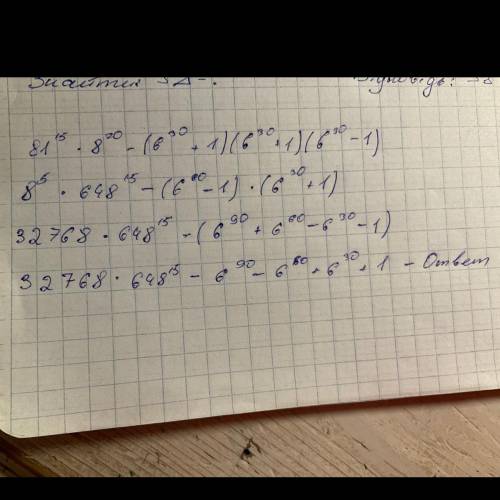 Знайти
Відповідь:
81¹⁵ · 8²⁰ - (6³⁰ + 1)(6³⁰ + 1)(6³⁰ - 1)
8⁵ · 648¹⁵ - (6⁶⁰ - 1) · (6³⁰ + 1)
32768 · 648¹⁵ - (6⁹⁰ + 6⁶⁰ - 6³⁰ - 1)
32768 · 648¹⁵ - 6⁹⁰ - 6⁶⁰ + 6³⁰ + 1 - Ответ